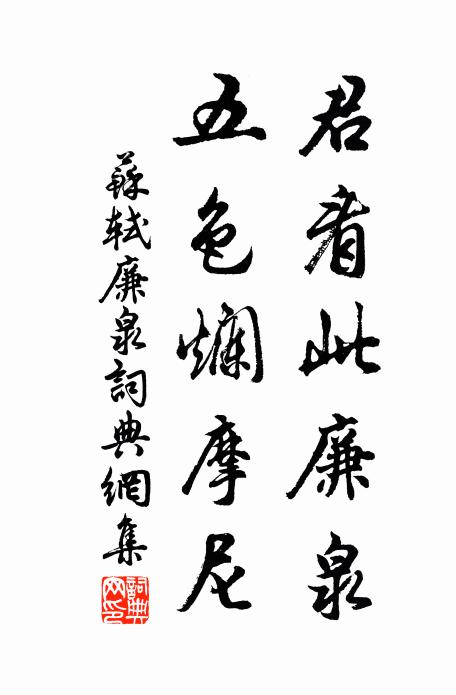 君看此廉泉
五色爛摩尼
蘇軾廉泉詞典網集
詞典网印